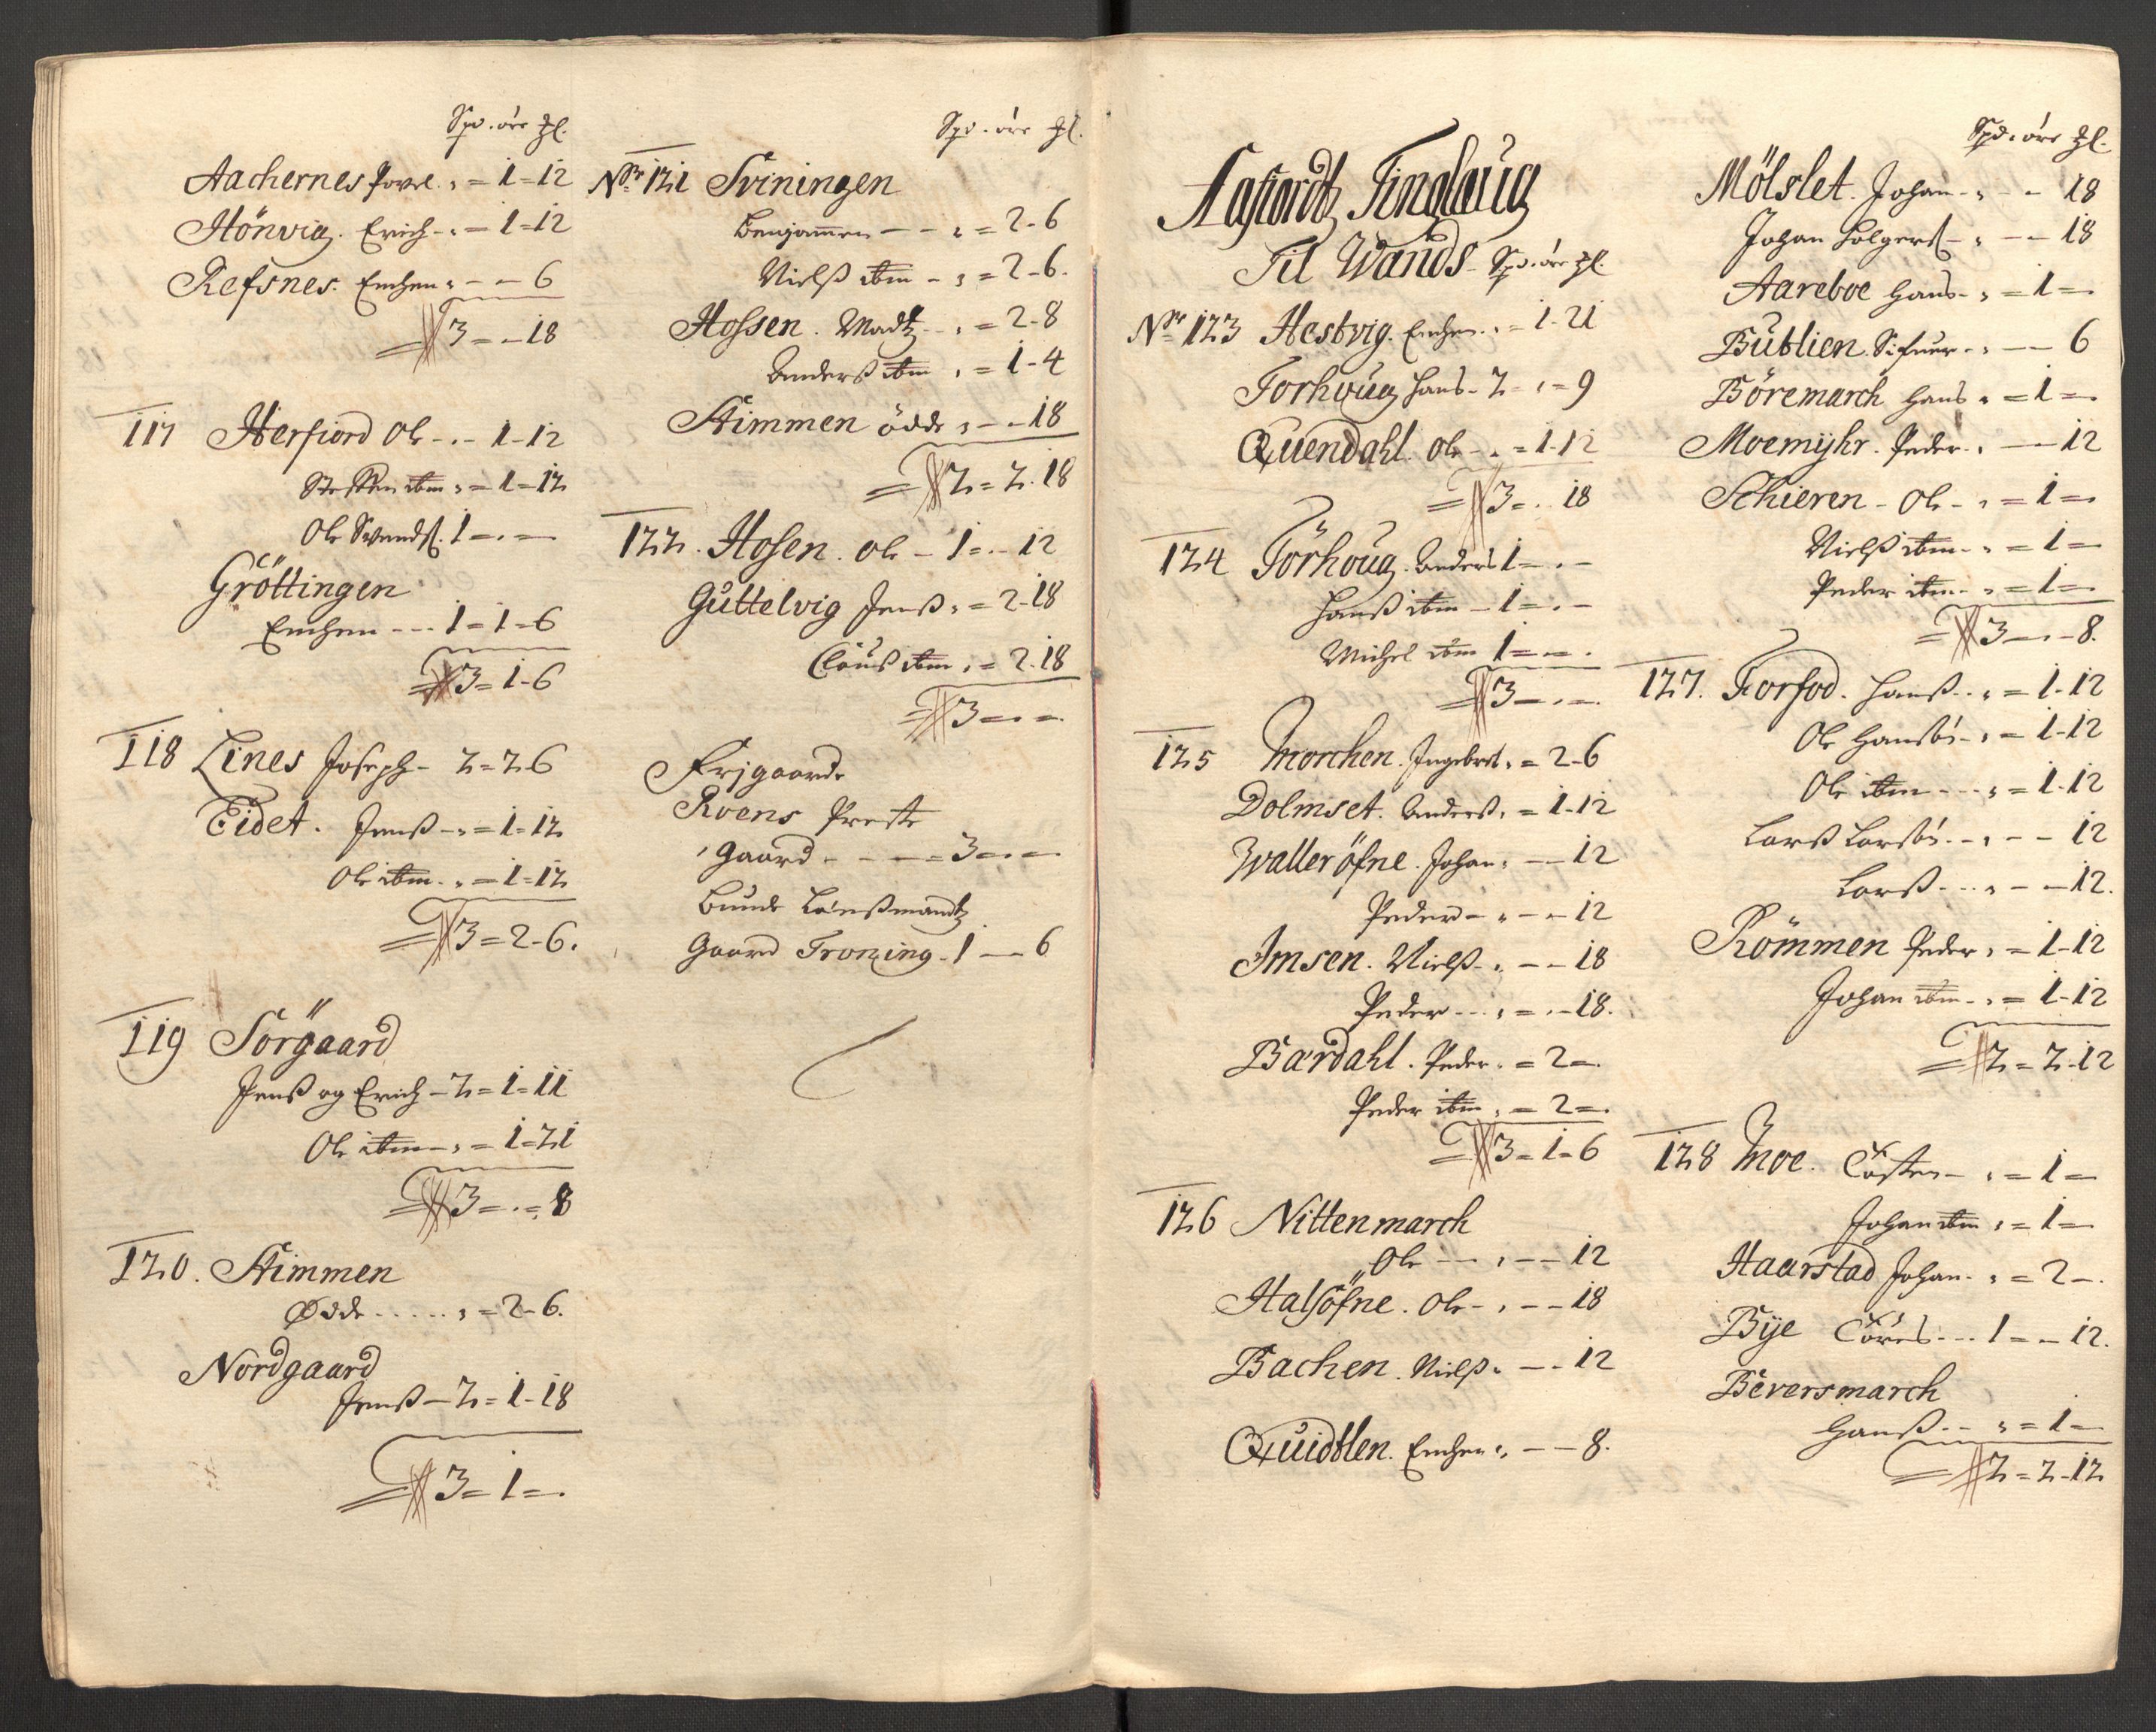 Spd. öre Ml.
Aachernes Povel. „ = 1 = 12
Hönvig. Erich - „ = 1 = 12
Refsnes. Enchen „ - - 6
3 = - 18
117 Herfiord Ole - „ - 1 - 12
Steffen ibm „ = 1 = 12
Ole Svends. 1 - „ -
Gröttingen
Enchen - - - 1 = 1 = 6
3 = 1 - 6
118 Lines Joseph - 2 = 2 6
Eidet. Jenß - „ = 1 = 12
Ole ibm - „ = 1 = 12
3 = 2 - 6.
119 Sörgaard
Jenß og Erich - 2 = 1 = 11
Ole ibm - „ = 1 = 21
3 = „ = 8
120. Stimmen
Ödde - - - - „ = 2 - 6.
Nordgaard
Jenß - 2 = 1 - 18
3 = 1 = „
Spd. öre Ml.
No 121 Sviningen
Benjamen - - „ = 2 - 6
Nielß ibm - „ = 2 - 6.
Hossen. Madtz - „ = 2 - 8
Anderß ibm „ = 1 - 4
Stimmen ödde „ - - 18
2 = 2. 18
122. Hosen. Ole - 1 = - 12
Guttelvig Jenß „ = 2 - 18
Clauß ibm „ = 2. 18
3 = „ =
Frjgaarde
Roens Preste
gaard - - - = 3 = „ =
Bunde Lenßmandtz
Gaard Froning - 1 - 6
Aafiordtz Tinglaug
Til Wands Spd. öre Ml.
No 123 Hestvig. Enchen „ = 1 - 21
Torhoug Hans - 2 - „ = 9
Quendahl. Ole - „ = 1 - 12
3 = „ 18
124 Törhoug. Anders 1 = „ -
Hanß ibm - 1 = „ -
Michel ibm 1 = - „
3 = „ =
125 Morchen. Ingebret „ = 2 - 6
Dolmset. Anderß „ = 1 - 12
Walleröfne. Johan „ - - 12
Peder - „ - - 12
Imsen. Nielß - „ - - 18
Peder - - „ = - 18.
Bardahl. Peder „ = 2 =
Peder ibm „ = 2 =
3 = 1 = 6
126 Nittenmarch
Ole - - „ - - 12
Halsöfne. Ole - „ - - 18
Bachen. Nielß „ - - 12
Quidtlen. Enchen „ - - 8.
Spd. öre Ml.
Mölslet. Johan - „ - - 18
Johan Holgers - „ - - 18
Aareboe Hans - „ = 1 =
Bublien. Sifuer - „ - - 6
Böremarch Hans „ = 1 =
Moemyhr. Peder - „ - - 12
Schieren - Ole - „ = 1 =
Nielß ibm - „ = 1 =
Peder ibm - „ = 1 =
3 - „ - 8.
127. Forfod. Hanß - „ = 1 - 12
Ole Hansön - „ = 1 - 12
Ole ibm - - „ = 1 - 12
Larß Larsön - „ - - 12
Larß - - „ - - 12.
Römmen Peder „ = 1 - 12
Johan ibm - „ = 1 - 12
2 = 2 - 12
128 Moe. Cösten - „ = 1 =
Johan ibm „ = 1 =
Haarstad Johan - „ = 2 - „
Bye Cörrel - - 1 = - 12.
Beversmarch
Hanß - - „ = 1 =
2 = 2 - 12